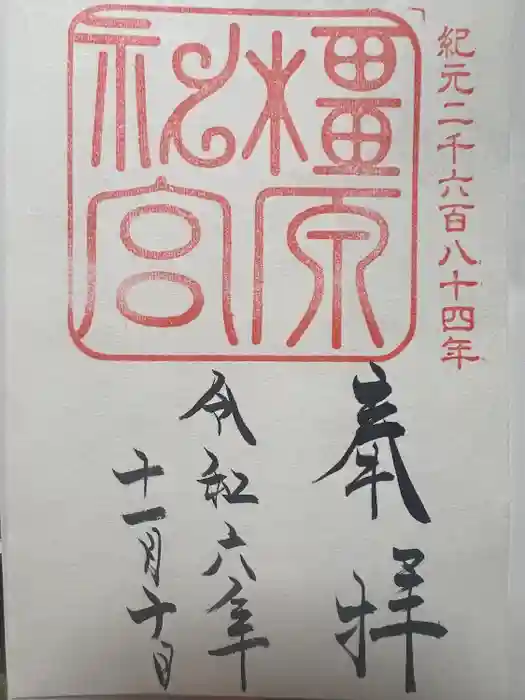 紀元二千六百八十四年
橿原
神宮
奉拝
令和六年
十一月十日